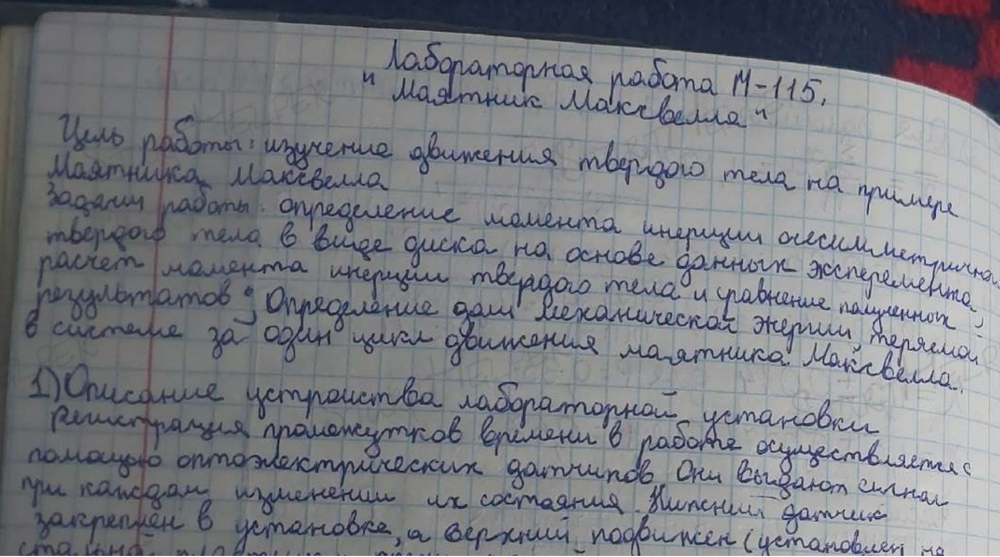 Лабораторная работа М-115.
"Маятник Максвелла"
Цель работы: изучение движения твердого тела на примере
Маятника Максвелла
Задачи работы: определение момента инерции осесимметрично
твердого тела в виде диска на основе данных эксперемента,
расчет момента инерции твердого тела и сравнение полученных
результатов; Определение доли механической энергии, теряемой
в системе за один цикл движения маятника Максвелла.
1) Описание устроиства лабораторной установки
Регистрация промежутков времени в работе осуществляется с
помощью оптоэлектрических датчиков. Они выдают сигнал
при каждом изменении их состояния. Нижний датчик
закреплен в установке, а верхний подвижен (установлен на